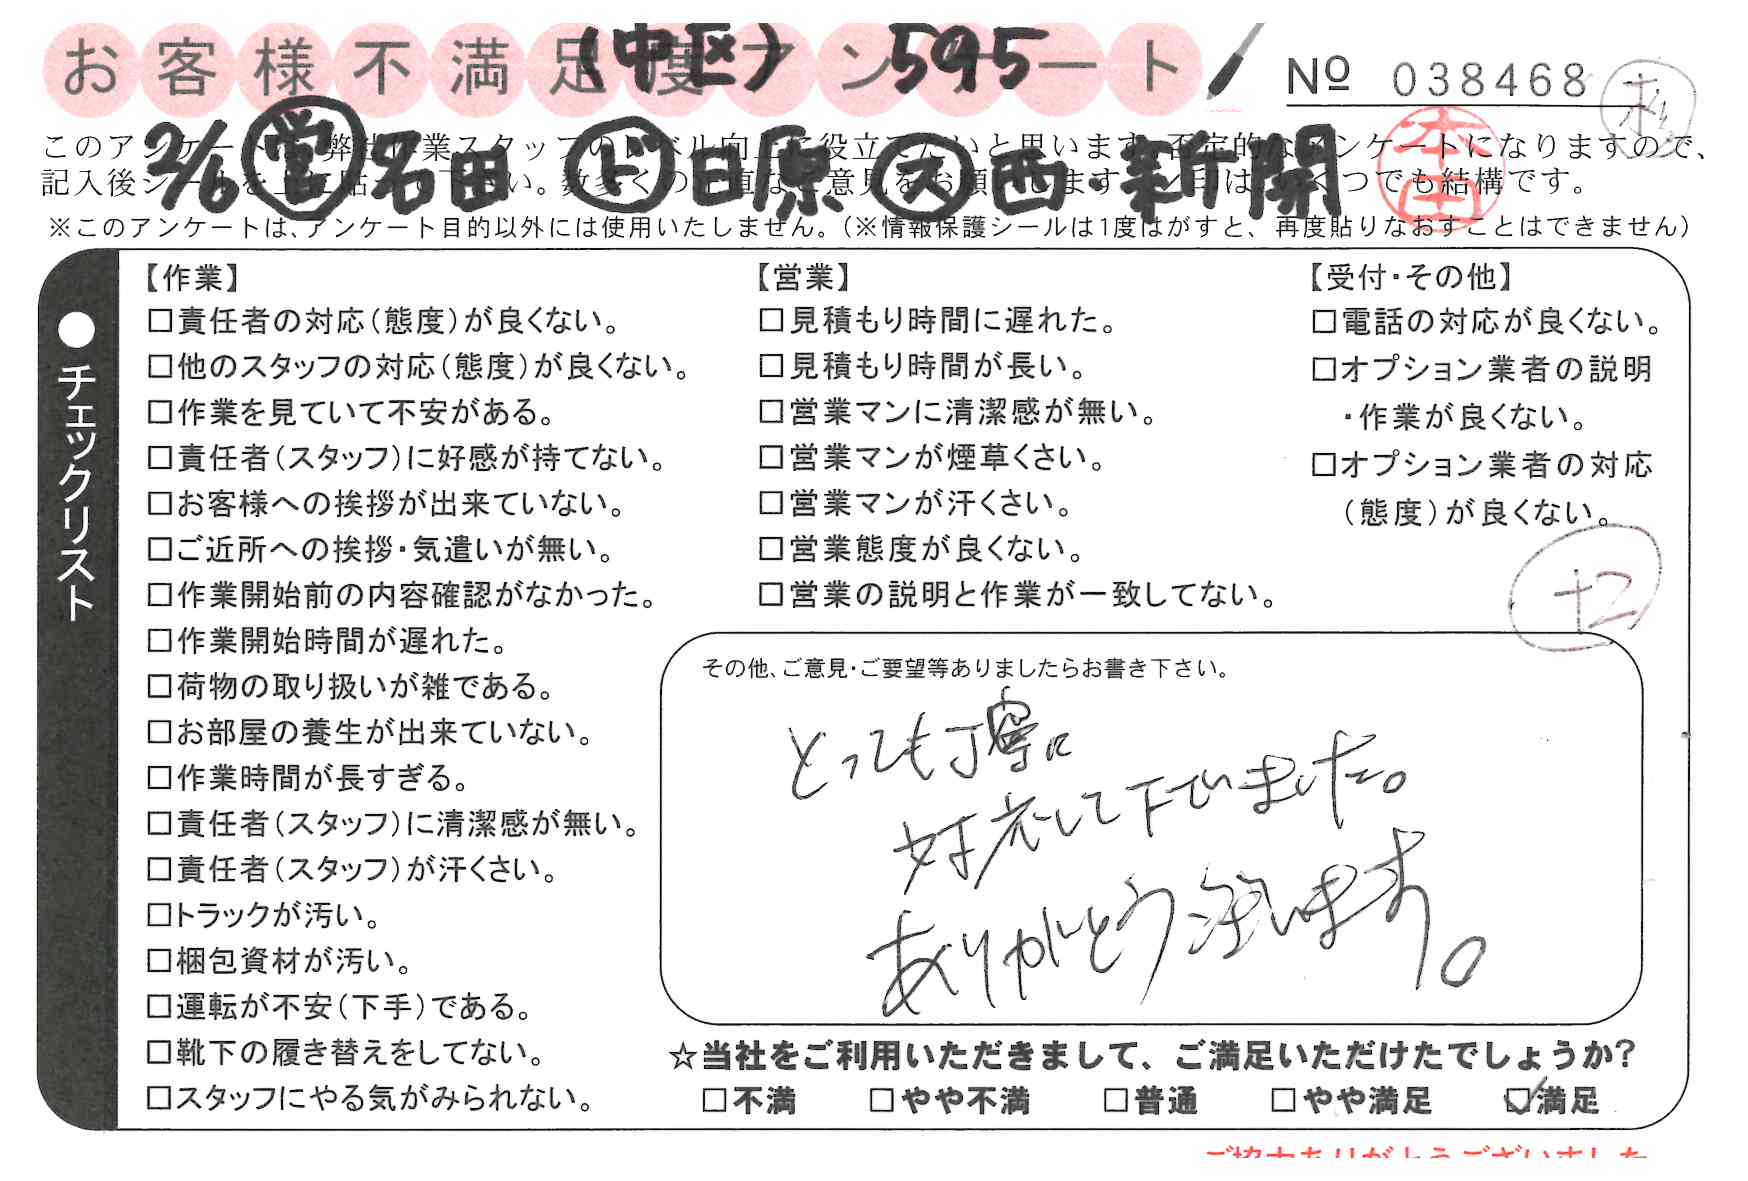 お客様不満足度アンケート
(中区) 595
№ 038468
2/6 営 名田 ド 日原 ス 西 新開
本田
このアンケートは、弊社作業スタッフのレベル向上に役立てたいと思います。否定的なアンケートになりますので、
記入後シールを上に貼って下さい。数多くの正直なご意見をお願いします。レ印は、いくつでも結構です。
※このアンケートは、アンケート目的以外には使用いたしません。(※情報保護シールは1度はがすと、再度貼りなおすことはできません)
●チェックリスト
【作業】
□責任者の対応(態度)が良くない。
□他のスタッフの対応(態度)が良くない。
□作業を見ていて不安がある。
□責任者(スタッフ)に好感が持てない。
□お客様への挨拶が出来ていない。
□ご近所への挨拶・気遣いが無い。
□作業開始前の内容確認がなかった。
□作業開始時間が遅れた。
□荷物の取り扱いが雑である。
□お部屋の養生が出来ていない。
□作業時間が長すぎる。
□責任者(スタッフ)に清潔感が無い。
□責任者(スタッフ)が汗くさい。
□トラックが汚い。
□梱包資材が汚い。
□運転が不安(下手)である。
□靴下の履き替えをしてない。
□スタッフにやる気がみられない。
【営業】
□見積もり時間に遅れた。
□見積もり時間が長い。
□営業マンに清潔感が無い。
□営業マンが煙草くさい。
□営業マンが汗くさい。
□営業態度が良くない。
□営業の説明と作業が一致してない。
【受付・その他】
□電話の対応が良くない。
□オプション業者の説明
・作業が良くない。
□オプション業者の対応
(態度)が良くない。
+2
その他、ご意見・ご要望等ありましたらお書き下さい。
とっても丁寧に
対応して下さいました。
ありがとう御座います。
☆当社をご利用いただきまして、ご満足いただけたでしょうか?
□不満 □やや不満 □普通 □やや満足 ☑満足
ご協力ありがとうございました